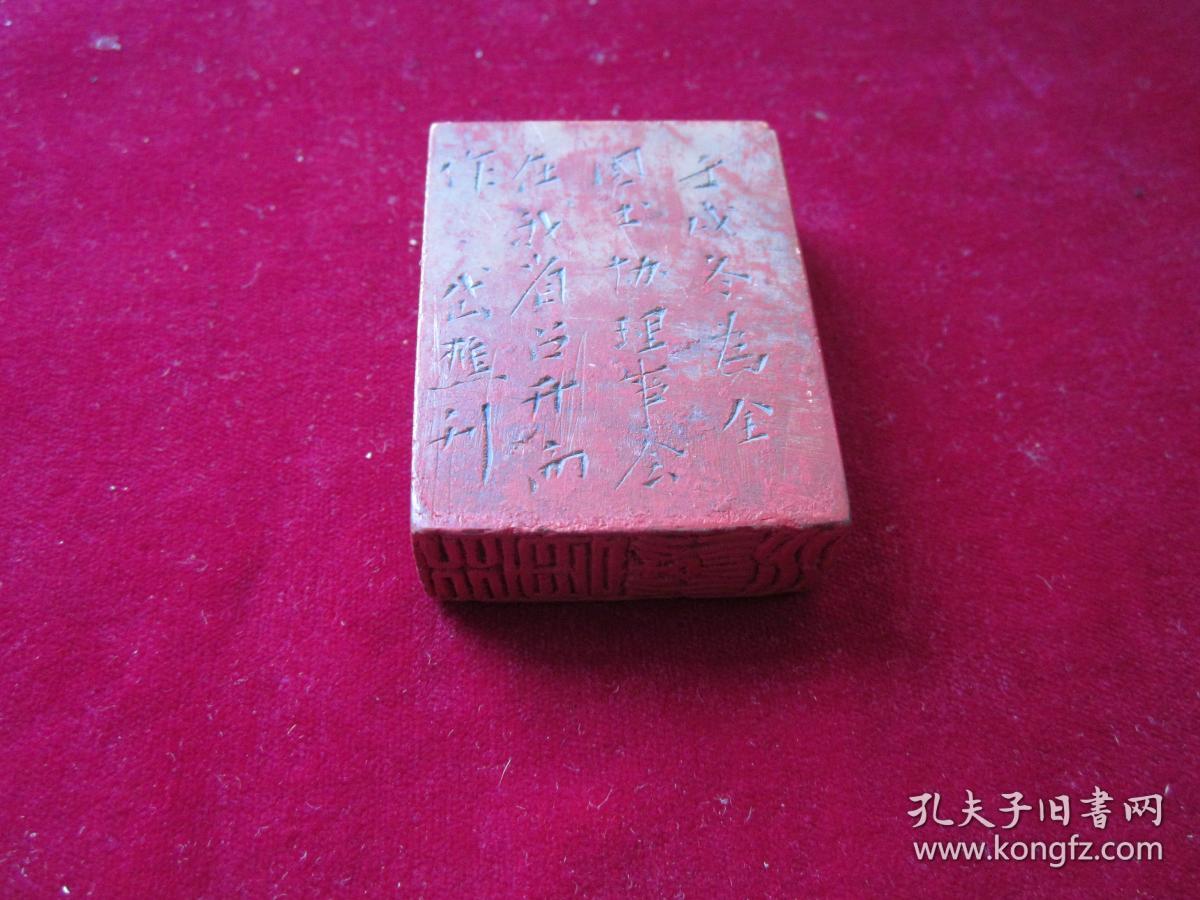 壬戌冬为全
国书协理事会
在我省召开而
作 岱樵刊
孔夫子旧書网
www.kongfz.com